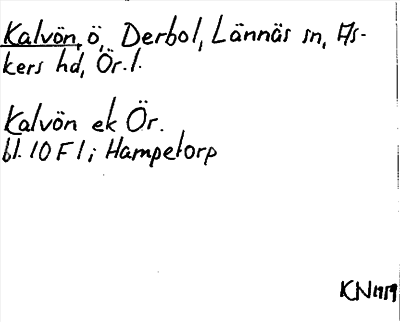 Kalvön, ö, Derbol, Lännäs sn, As-
kers hd, Ör. l.
Kalvön ek Ör.
bl. 10 F 1; Hampetorp